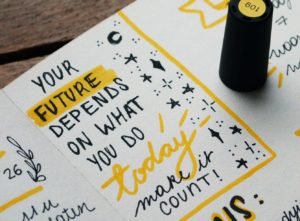 YOUR
FUTURE
DEPENDS
ON WHAT
YOU DO
today
make it
COUNT!
26
109